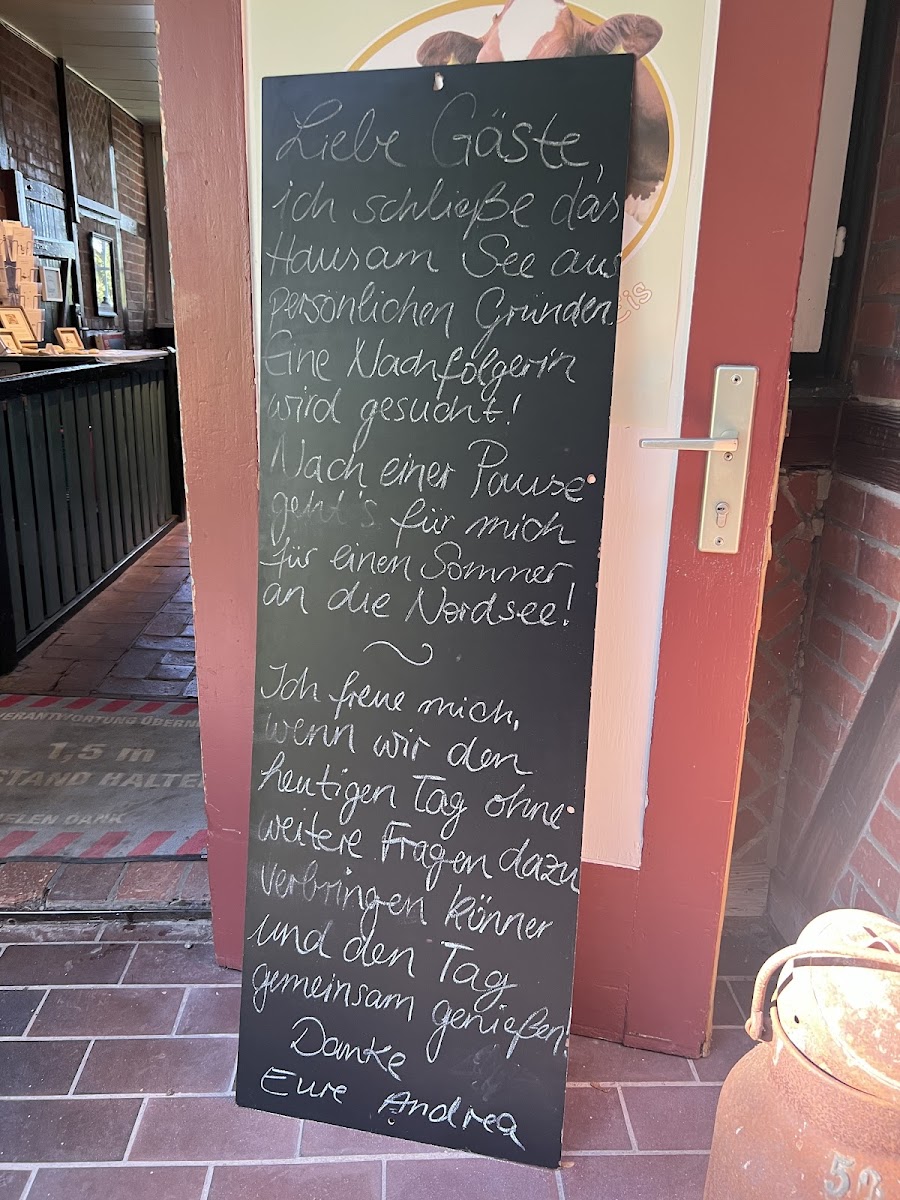 Liebe Gäste,
ich schließe das
Haus am See aus
persönlichen Gründen.
Eine Nachfolgerin
wird gesucht!
Nach einer Pause
geht's für mich
für einen Sommer
an die Nordsee!
Ich freue mich,
wenn wir den
heutigen Tag ohne
weitere Fragen dazu
verbringen können
und den Tag
gemeinsam genießen.
Danke
Eure Andrea
eis
VERANTWORTUNG ÜBERN
1,5 m
STAND HALTE
ELEN DANK